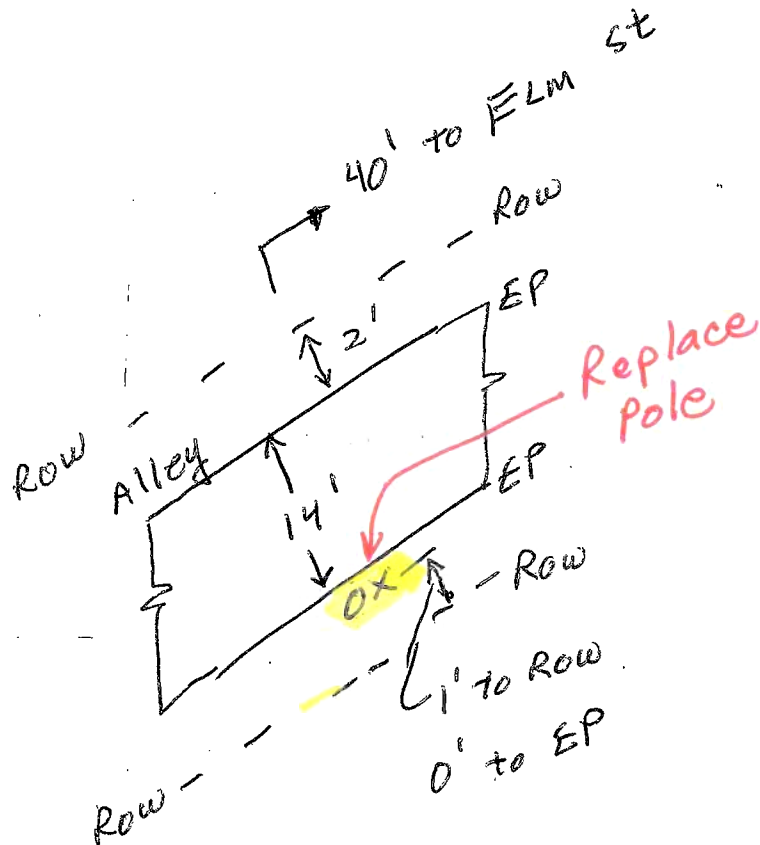 40' to ELM St
Row
2'
EP
Replace
Pole
Row
Alley
14'
EP
OX
Row
1' to Row
0' to EP
Row